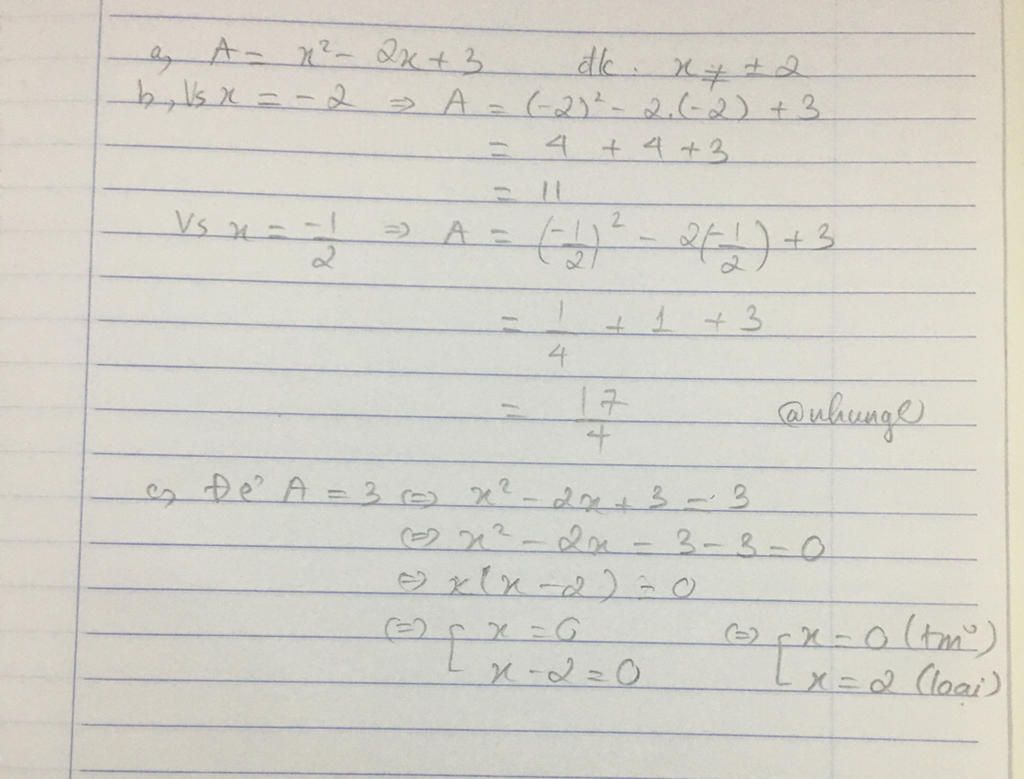 a, A = x² - 2x + 3 đk. x ≠ ± 2
b, Vs x = -2 ⇒ A = (-2)² - 2.(-2) + 3
= 4 + 4 + 3
= 11
Vs x = -1/2 ⇒ A = (-1/2)² - 2(-1/2) + 3
= 1/4 + 1 + 3
= 17/4 @nhungl
c, Để A = 3 ⇔ x² - 2x + 3 = 3
⇔ x² - 2x = 3 - 3 = 0
⇔ x(x - 2) = 0
⇔ [ x = 0 ⇔ [ x = 0 (tm)
x - 2 = 0 x = 2 (loại)